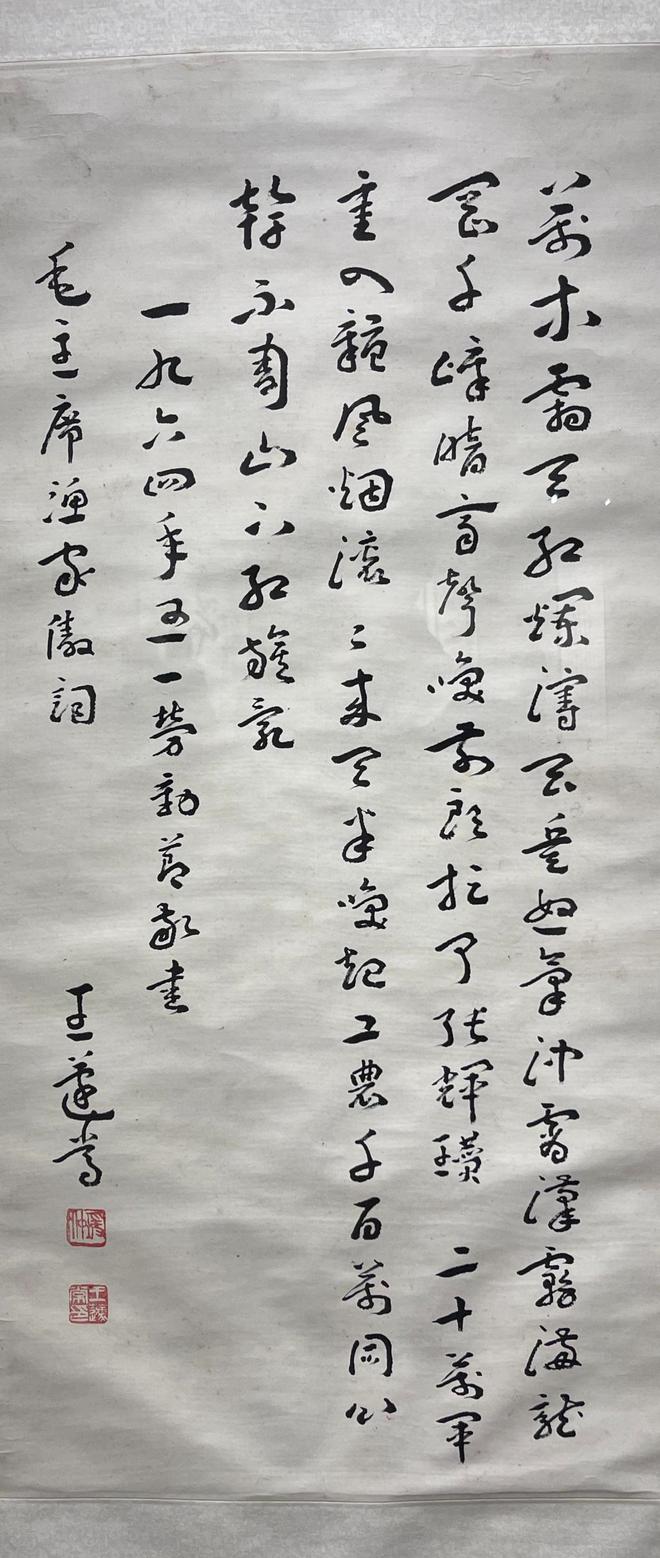 萬木霜天紅爛漫天兵怒氣沖霄漢霧滿龍
岡千嶂暗齊聲喚前頭捉了張輝瓚 二十萬軍
重入贛風烟滾〻來天半喚起工農千百萬同心
幹不周山下紅旗亂
一九六四年五一勞動節敬書
毛主席漁家傲詞 王蘧常
瑗仲
王蘧常印